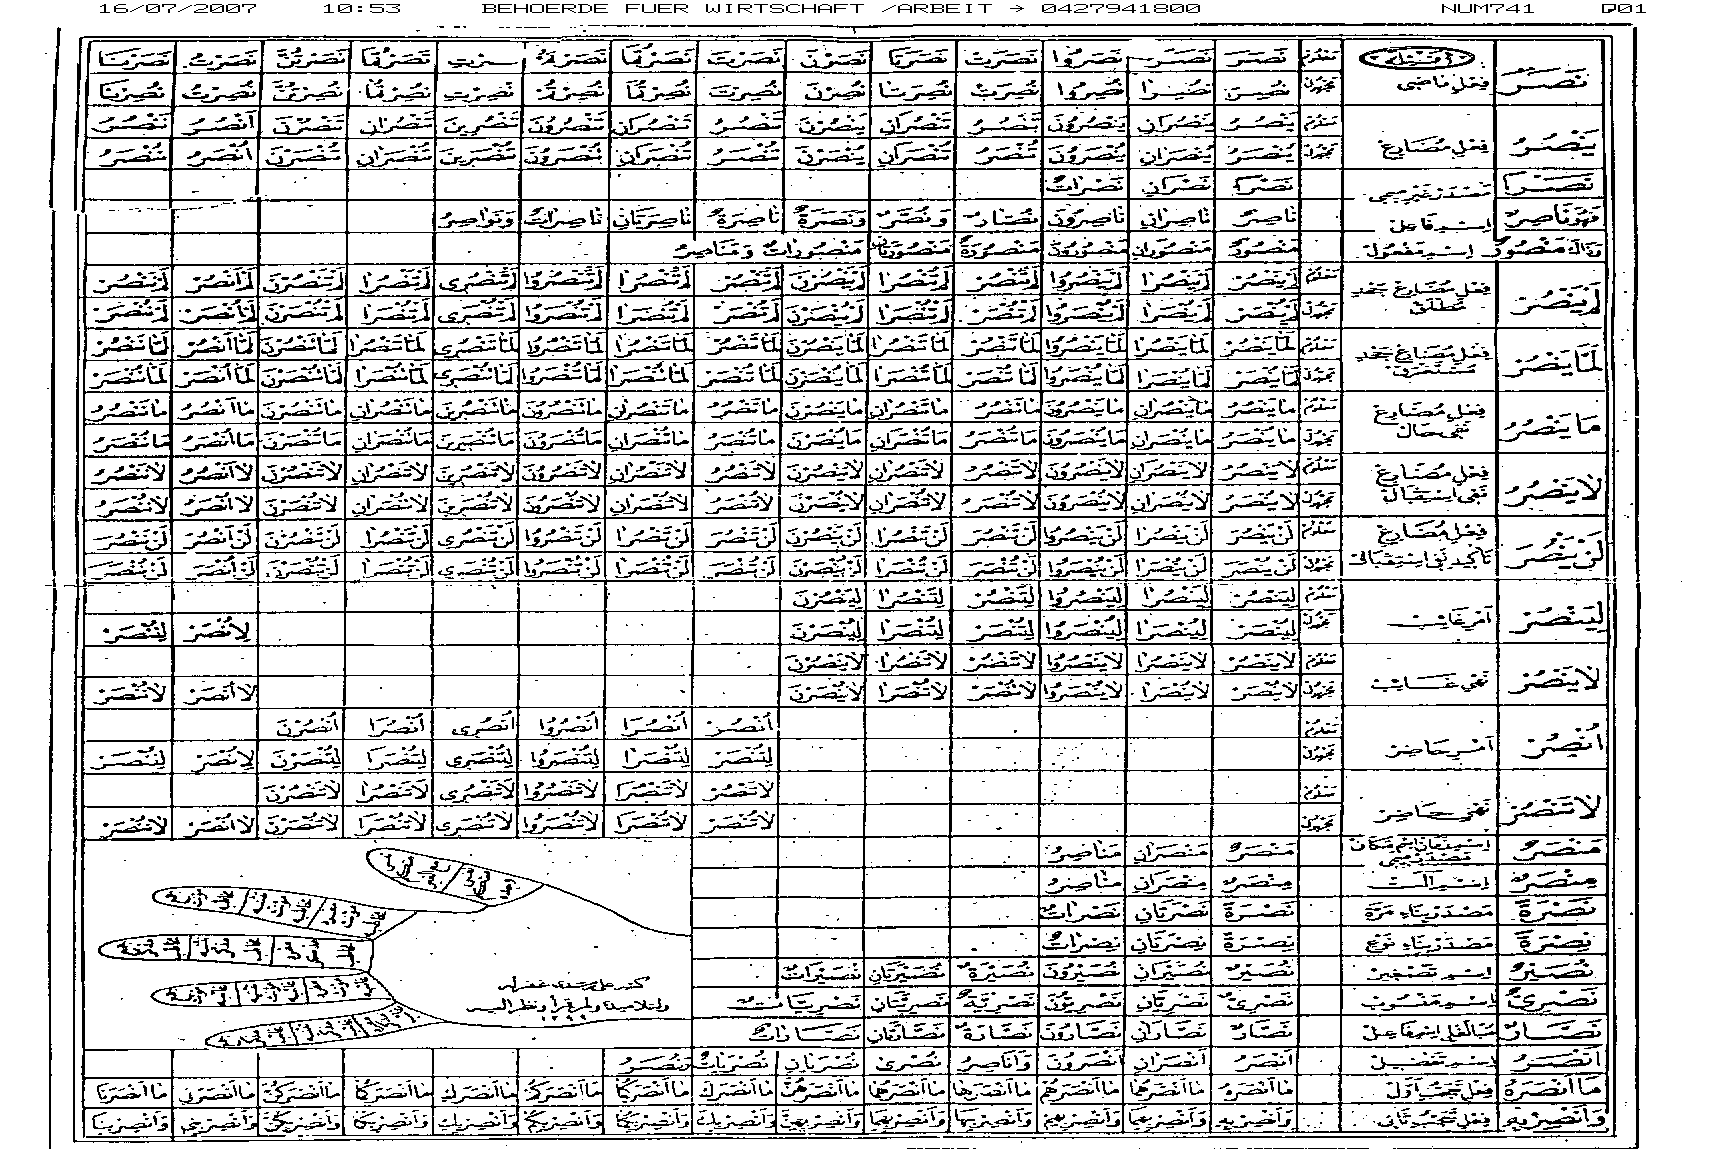 16/07/2007 10:53 BEHOERDE FUER WIRTSCHAFT /ARBEIT → 0427941800 NUM741 D01
نَصَرَ فعل ماضى معلوم نَصَرَ نَصَرَا نَصَرُوا نَصَرَتْ نَصَرَتَا نَصَرْنَ نَصَرْتَ نَصَرْتُمَا نَصَرْتُمْ نَصَرْتِ نَصَرْتُمَا نَصَرْتُنَّ نَصَرْتُ نَصَرْنَا
مجهول نُصِرَ نُصِرَا نُصِرُوا نُصِرَتْ نُصِرَتَا نُصِرْنَ نُصِرْتَ نُصِرْتُمَا نُصِرْتُمْ نُصِرْتِ نُصِرْتُمَا نُصِرْتُنَّ نُصِرْتُ نُصِرْنَا
يَنْصُرُ فعل مضارع معلوم يَنْصُرُ يَنْصُرَانِ يَنْصُرُونَ تَنْصُرُ تَنْصُرَانِ يَنْصُرْنَ تَنْصُرُ تَنْصُرَانِ تَنْصُرُونَ تَنْصُرِينَ تَنْصُرَانِ تَنْصُرْنَ اَنْصُرُ نَنْصُرُ
مجهول يُنْصَرُ يُنْصَرَانِ يُنْصَرُونَ تُنْصَرُ تُنْصَرَانِ يُنْصَرْنَ تُنْصَرُ تُنْصَرَانِ تُنْصَرُونَ تُنْصَرِينَ تُنْصَرَانِ تُنْصَرْنَ اُنْصَرُ نُنْصَرُ
نَصْرًا مصدر غير ميمى نَصْرًا نَصْرَانِ نَصْرَاتٌ
فهو نَاصِرٌ اسم فاعل نَاصِرٌ نَاصِرَانِ نَاصِرُونَ نُصَّارٌ وَنُصَّرٌ وَنَصَرَةٌ نَاصِرَةٌ نَاصِرَتَانِ نَاصِرَاتٌ وَنَوَاصِرُ
وذاك مَنْصُورٌ اسم مفعول مَنْصُورٌ مَنْصُورَانِ مَنْصُورُونَ مَنْصُورَةٌ مَنْصُورَتَانِ مَنْصُورَاتٌ وَمَنَاصِرُ
لَمْ يَنْصُرْ فعل مضارع جحد مطلق معلوم لَمْ يَنْصُرْ لَمْ يَنْصُرَا لَمْ يَنْصُرُوا لَمْ تَنْصُرْ لَمْ تَنْصُرَا لَمْ يَنْصُرْنَ لَمْ تَنْصُرْ لَمْ تَنْصُرَا لَمْ تَنْصُرُوا لَمْ تَنْصُرِى لَمْ تَنْصُرَا لَمْ تَنْصُرْنَ لَمْ اَنْصُرْ لَمْ نَنْصُرْ
مجهول لَمْ يُنْصَرْ لَمْ يُنْصَرَا لَمْ يُنْصَرُوا لَمْ تُنْصَرْ لَمْ تُنْصَرَا لَمْ يُنْصَرْنَ لَمْ تُنْصَرْ لَمْ تُنْصَرَا لَمْ تُنْصَرُوا لَمْ تُنْصَرِى لَمْ تُنْصَرَا لَمْ تُنْصَرْنَ لَمْ اُنْصَرْ لَمْ نُنْصَرْ
لَمَّا يَنْصُرْ فعل مضارع جحد مستغرق معلوم لَمَّا يَنْصُرْ لَمَّا يَنْصُرَا لَمَّا يَنْصُرُوا لَمَّا تَنْصُرْ لَمَّا تَنْصُرَا لَمَّا يَنْصُرْنَ لَمَّا تَنْصُرْ لَمَّا تَنْصُرَا لَمَّا تَنْصُرُوا لَمَّا تَنْصُرِى لَمَّا تَنْصُرَا لَمَّا تَنْصُرْنَ لَمَّا اَنْصُرْ لَمَّا نَنْصُرْ
مجهول لَمَّا يُنْصَرْ لَمَّا يُنْصَرَا لَمَّا يُنْصَرُوا لَمَّا تُنْصَرْ لَمَّا تُنْصَرَا لَمَّا يُنْصَرْنَ لَمَّا تُنْصَرْ لَمَّا تُنْصَرَا لَمَّا تُنْصَرُوا لَمَّا تُنْصَرِى لَمَّا تُنْصَرَا لَمَّا تُنْصَرْنَ لَمَّا اُنْصَرْ لَمَّا نُنْصَرْ
مَا يَنْصُرُ فعل مضارع نفى حال معلوم مَا يَنْصُرُ مَا يَنْصُرَانِ مَا يَنْصُرُونَ مَا تَنْصُرُ مَا تَنْصُرَانِ مَا يَنْصُرْنَ مَا تَنْصُرُ مَا تَنْصُرَانِ مَا تَنْصُرُونَ مَا تَنْصُرِينَ مَا تَنْصُرَانِ مَا تَنْصُرْنَ مَا اَنْصُرُ مَا نَنْصُرُ
مجهول مَا يُنْصَرُ مَا يُنْصَرَانِ مَا يُنْصَرُونَ مَا تُنْصَرُ مَا تُنْصَرَانِ مَا يُنْصَرْنَ مَا تُنْصَرُ مَا تُنْصَرَانِ مَا تُنْصَرُونَ مَا تُنْصَرِينَ مَا تُنْصَرَانِ مَا تُنْصَرْنَ مَا اُنْصَرُ مَا نُنْصَرُ
لَا يَنْصُرُ فعل مضارع نفى استقبال معلوم لَا يَنْصُرُ لَا يَنْصُرَانِ لَا يَنْصُرُونَ لَا تَنْصُرُ لَا تَنْصُرَانِ لَا يَنْصُرْنَ لَا تَنْصُرُ لَا تَنْصُرَانِ لَا تَنْصُرُونَ لَا تَنْصُرِينَ لَا تَنْصُرَانِ لَا تَنْصُرْنَ لَا اَنْصُرُ لَا نَنْصُرُ
مجهول لَا يُنْصَرُ لَا يُنْصَرَانِ لَا يُنْصَرُونَ لَا تُنْصَرُ لَا تُنْصَرَانِ لَا يُنْصَرْنَ لَا تُنْصَرُ لَا تُنْصَرَانِ لَا تُنْصَرُونَ لَا تُنْصَرِينَ لَا تُنْصَرَانِ لَا تُنْصَرْنَ لَا اُنْصَرُ لَا نُنْصَرُ
لَنْ يَنْصُرَ فعل مضارع تأكيد نفى استقبال معلوم لَنْ يَنْصُرَ لَنْ يَنْصُرَا لَنْ يَنْصُرُوا لَنْ تَنْصُرَ لَنْ تَنْصُرَا لَنْ يَنْصُرْنَ لَنْ تَنْصُرَ لَنْ تَنْصُرَا لَنْ تَنْصُرُوا لَنْ تَنْصُرِى لَنْ تَنْصُرَا لَنْ تَنْصُرْنَ لَنْ اَنْصُرَ لَنْ نَنْصُرَ
مجهول لَنْ يُنْصَرَ لَنْ يُنْصَرَا لَنْ يُنْصَرُوا لَنْ تُنْصَرَ لَنْ تُنْصَرَا لَنْ يُنْصَرْنَ لَنْ تُنْصَرَ لَنْ تُنْصَرَا لَنْ تُنْصَرُوا لَنْ تُنْصَرِى لَنْ تُنْصَرَا لَنْ تُنْصَرْنَ لَنْ اُنْصَرَ لَنْ نُنْصَرَ
لِيَنْصُرْ امر غايب معلوم لِيَنْصُرْ لِيَنْصُرَا لِيَنْصُرُوا لِتَنْصُرْ لِتَنْصُرَا لِيَنْصُرْنَ
مجهول لِيُنْصَرْ لِيُنْصَرَا لِيُنْصَرُوا لِتُنْصَرْ لِتُنْصَرَا لِيُنْصَرْنَ لِاُنْصَرْ لِنُنْصَرْ
لَا يَنْصُرْ نهى غايب معلوم لَا يَنْصُرْ لَا يَنْصُرَا لَا يَنْصُرُوا لَا تَنْصُرْ لَا تَنْصُرَا لَا يَنْصُرْنَ
مجهول لَا يُنْصَرْ لَا يُنْصَرَا لَا يُنْصَرُوا لَا تُنْصَرْ لَا تُنْصَرَا لَا يُنْصَرْنَ لَا اُنْصَرْ لَا نُنْصَرْ
اُنْصُرْ امر حاضر معلوم اُنْصُرْ اُنْصُرَا اُنْصُرُوا اُنْصُرِى اُنْصُرَا اُنْصُرْنَ
مجهول لِتُنْصَرْ لِتُنْصَرَا لِتُنْصَرُوا لِتُنْصَرِى لِتُنْصَرَا لِتُنْصَرْنَ لِاُنْصَرْ لِنُنْصَرْ
لَا تَنْصُرْ نهى حاضر معلوم لَا تَنْصُرْ لَا تَنْصُرَا لَا تَنْصُرُوا لَا تَنْصُرِى لَا تَنْصُرَا لَا تَنْصُرْنَ
مجهول لَا تُنْصَرْ لَا تُنْصَرَا لَا تُنْصَرُوا لَا تُنْصَرِى لَا تُنْصَرَا لَا تُنْصَرْنَ لَا اُنْصَرْ لَا نُنْصَرْ
مَنْصَرٌ اسم زمان اسم مكان مصدر ميمى مَنْصَرٌ مَنْصَرَانِ مَنَاصِرُ
مِنْصَرٌ اسم آلت مِنْصَرٌ مِنْصَرَانِ مَنَاصِرُ
نَصْرَةً مصدر بناء مرة نَصْرَةً نَصْرَتَانِ نَصْرَاتٌ
نِصْرَةً مصدر بناء نوع نِصْرَةً نِصْرَتَانِ نِصْرَاتٌ
نُصَيْرٌ اسم تصغير نُصَيْرٌ نُصَيْرَانِ نُصَيْرُونَ نُصَيْرَةٌ نُصَيْرَتَانِ نُصَيْرَاتٌ
نَصْرِىٌّ اسم منسوب نَصْرِىٌّ نَصْرِيَّانِ نَصْرِيُّونَ نَصْرِيَّةٌ نَصْرِيَّتَانِ نَصْرِيَّاتٌ
نَصَّارٌ مبالغه اسم فاعل نَصَّارٌ نَصَّارَانِ نَصَّارُونَ نَصَّارَةٌ نَصَّارَتَانِ نَصَّارَاتٌ
اَنْصَرُ اسم تفضيل اَنْصَرُ اَنْصَرَانِ اَنْصَرُونَ وَاَنَاصِرُ نُصْرَى نُصْرَيَانِ نُصْرَيَاتٌ وَنُصَرُ
مَا اَنْصَرَهُ فعل تعجب اول مَا اَنْصَرَهُ مَا اَنْصَرَهُمَا مَا اَنْصَرَهُمْ مَا اَنْصَرَهَا مَا اَنْصَرَهُمَا مَا اَنْصَرَهُنَّ مَا اَنْصَرَكَ مَا اَنْصَرَكُمَا مَا اَنْصَرَكُمْ مَا اَنْصَرَكِ مَا اَنْصَرَكُمَا مَا اَنْصَرَكُنَّ مَا اَنْصَرَنِى مَا اَنْصَرَنَا
وَاَنْصِرْ بِهِ فعل تعجب ثانى وَاَنْصِرْ بِهِ وَاَنْصِرْ بِهِمَا وَاَنْصِرْ بِهِمْ وَاَنْصِرْ بِهَا وَاَنْصِرْ بِهِمَا وَاَنْصِرْ بِهِنَّ وَاَنْصِرْ بِكَ وَاَنْصِرْ بِكُمَا وَاَنْصِرْ بِكُمْ وَاَنْصِرْ بِكِ وَاَنْصِرْ بِكُمَا وَاَنْصِرْ بِكُنَّ وَاَنْصِرْ بِى وَاَنْصِرْ بِنَا